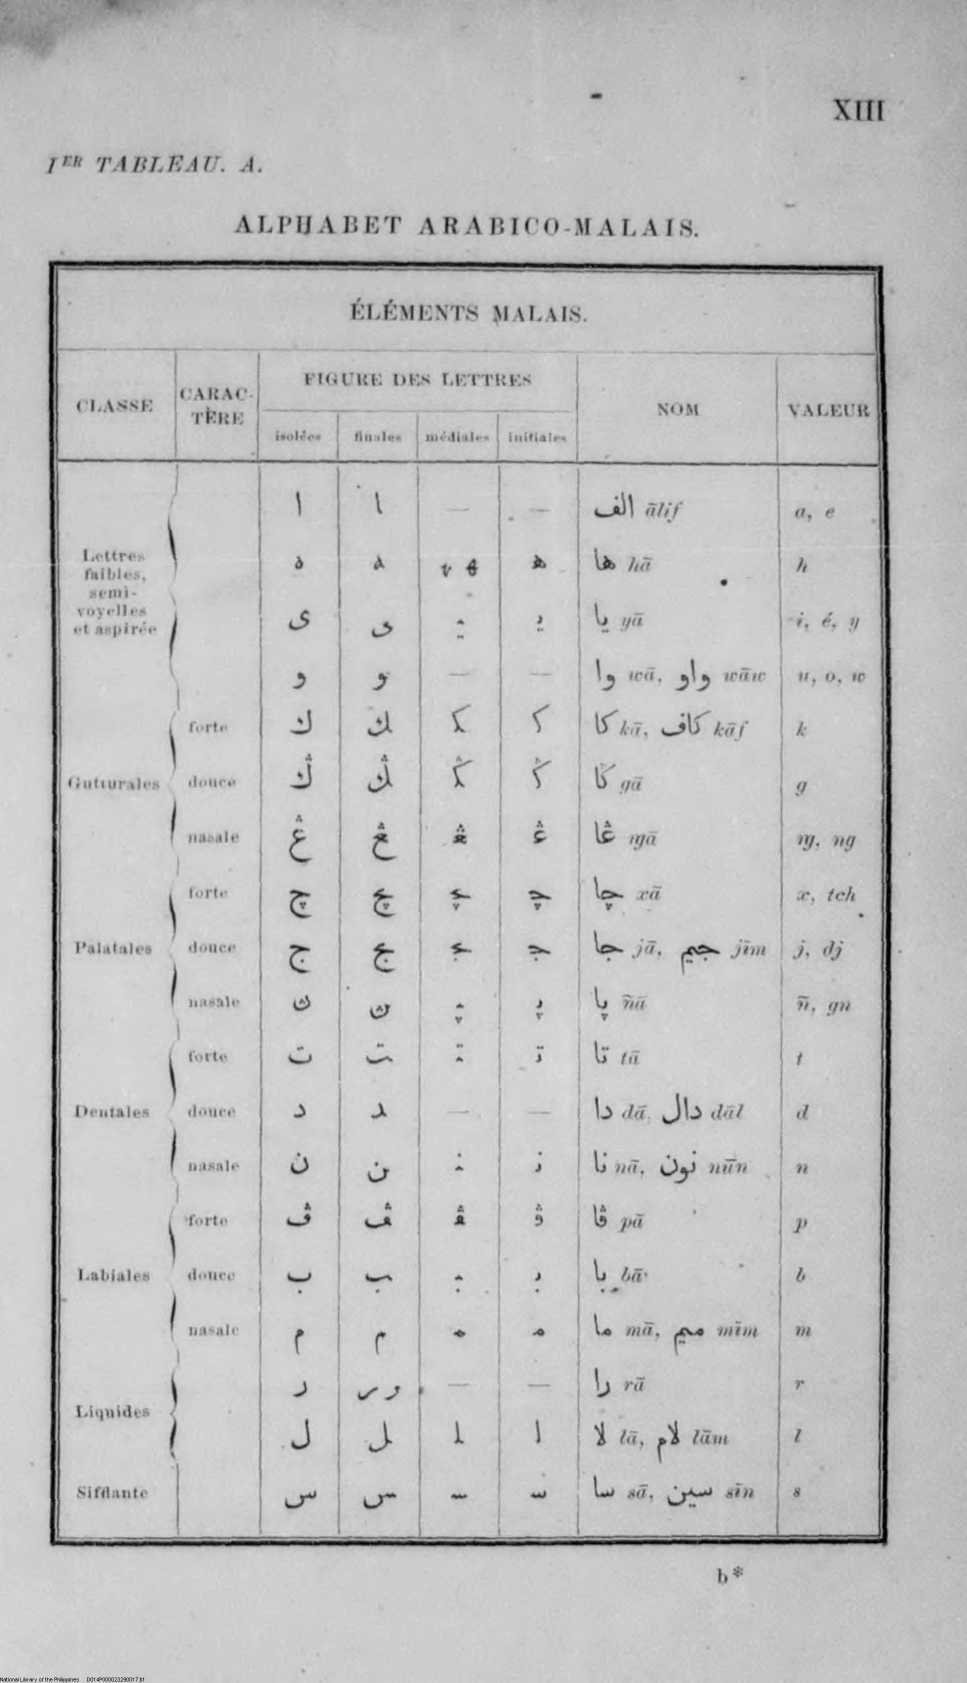 XIII
I^ER TABLEAU. A.
ALPHABET ARABICO-MALAIS.
ÉLÉMENTS MALAIS.
CLASSE CARACTÈRE FIGURE DES LETTRES NOM VALEUR
isolées finales médiales initiales
Lettres faibles, semi-voyelles et aspirée
ا ـا — — الف ālif a, e
ه ـه ـهـ هـ ها hā h
ى ـى ـيـ يـ يا yā i, é, y
و ـو — — وا wā, واو wāw u, o, w
Gutturales
forte ك ـك ـكـ كـ كا kā, كاف kāf k
douce ݣ ـݣ ـݣـ ݣـ ݣا gā g
nasale ڠ ـڠ ـڠـ ڠـ ڠا ngā ng
Palatales
forte چ ـچ ـچـ چـ چا xā x, tch
douce ج ـج ـجـ جـ جا jā, جيم jīm j, dj
nasale پا ñā ñ, gn
Dentales
forte ت ـت ـتـ تـ تا tā t
douce د ـد — — دا dā, دال dāl d
nasale ن ـن ـنـ نـ نا nā, نون nūn n
Labiales
forte ڤ ـڤ ـڤـ ڤـ ڤا pā p
douce ب ـب ـبـ بـ با bā b
nasale م ـم ـمـ مـ ما mā, ميم mīm m
Liquides
ر ـر — — را rā r
ل ـل ـلـ لـ لا lā, لام lām l
Sifflante س ـس ـسـ سـ سا sā, سين sīn s
b*
National Library of the Philippines